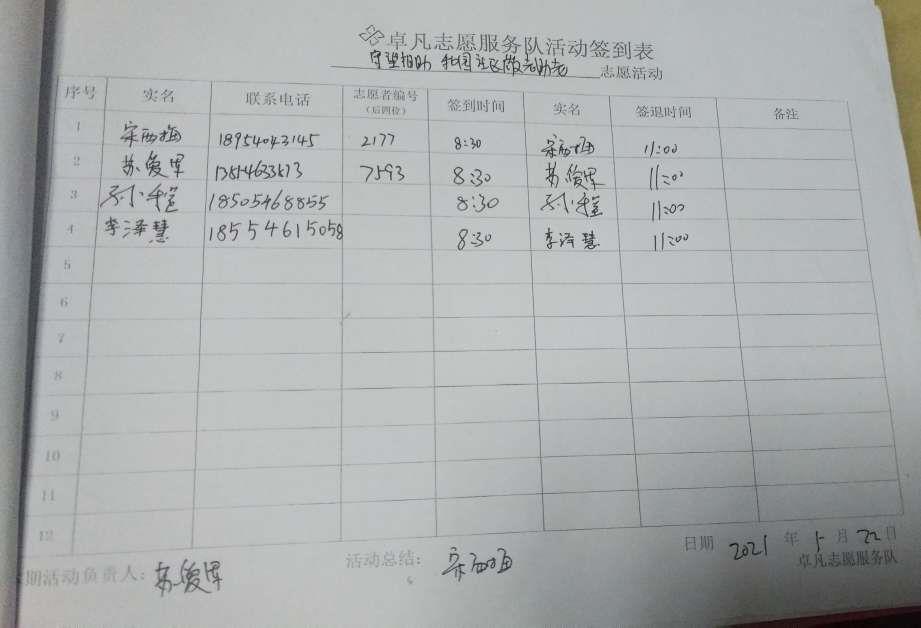 卓凡志愿服务队活动签到表
守望相助 社区敬老助老 志愿活动
序号 实名 联系电话 志愿者编号（后四位） 签到时间 实名 签退时间 备注
1 宋西梅 18954043145 2177 8:30 宋西梅 11:00
2 苏俊果 7593 8:30 苏俊果 11:00
3 18505468855 8:30 11:00
4 李泽慧 18554615058 8:30 李泽慧 11:00
5
6
7
8
9
10
11
12
期活动负责人：苏俊果 活动总结：宋西梅 日期 2021 年 5 月 22 日
卓凡志愿服务队